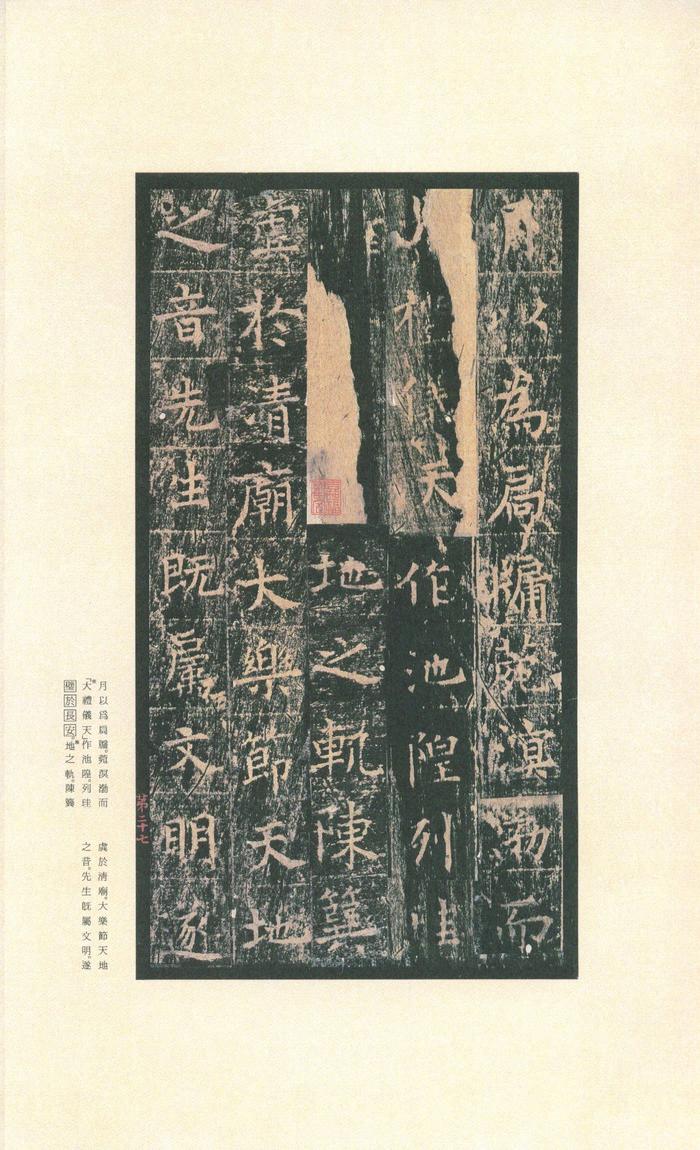 月以為扃牖菀溟渤而
禮儀天作池隍列珪
地之軌陳簨
虡於清廟大樂節天地
之音先生既屬文明遂
第二十七
月以爲扃牖。菀溟渤而
「大禮儀天」作池隍。列珪
璧於長安。地之軌。陳簨
虡於清廟。大樂節天地
之音。先生既屬文明。遂